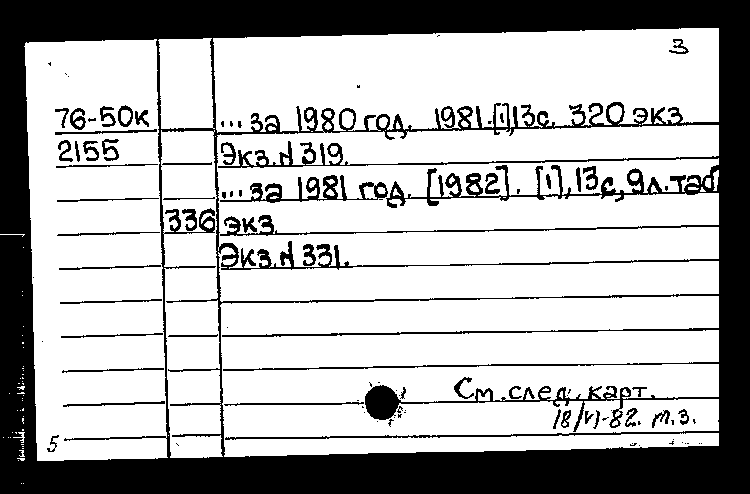 3
76-50к ... за 1980 год. 1981.[1],13с. 320 экз
2155 Экз.N 319.
... за 1981 год. [1982]. [1],13с,9л.таб
336 экз
Экз.N 331.
См.след.карт.
18/VI-82. т.з.
5